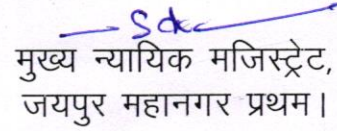 Sd
मुख्य न्यायिक मजिस्ट्रेट,
जयपुर महानगर प्रथम।